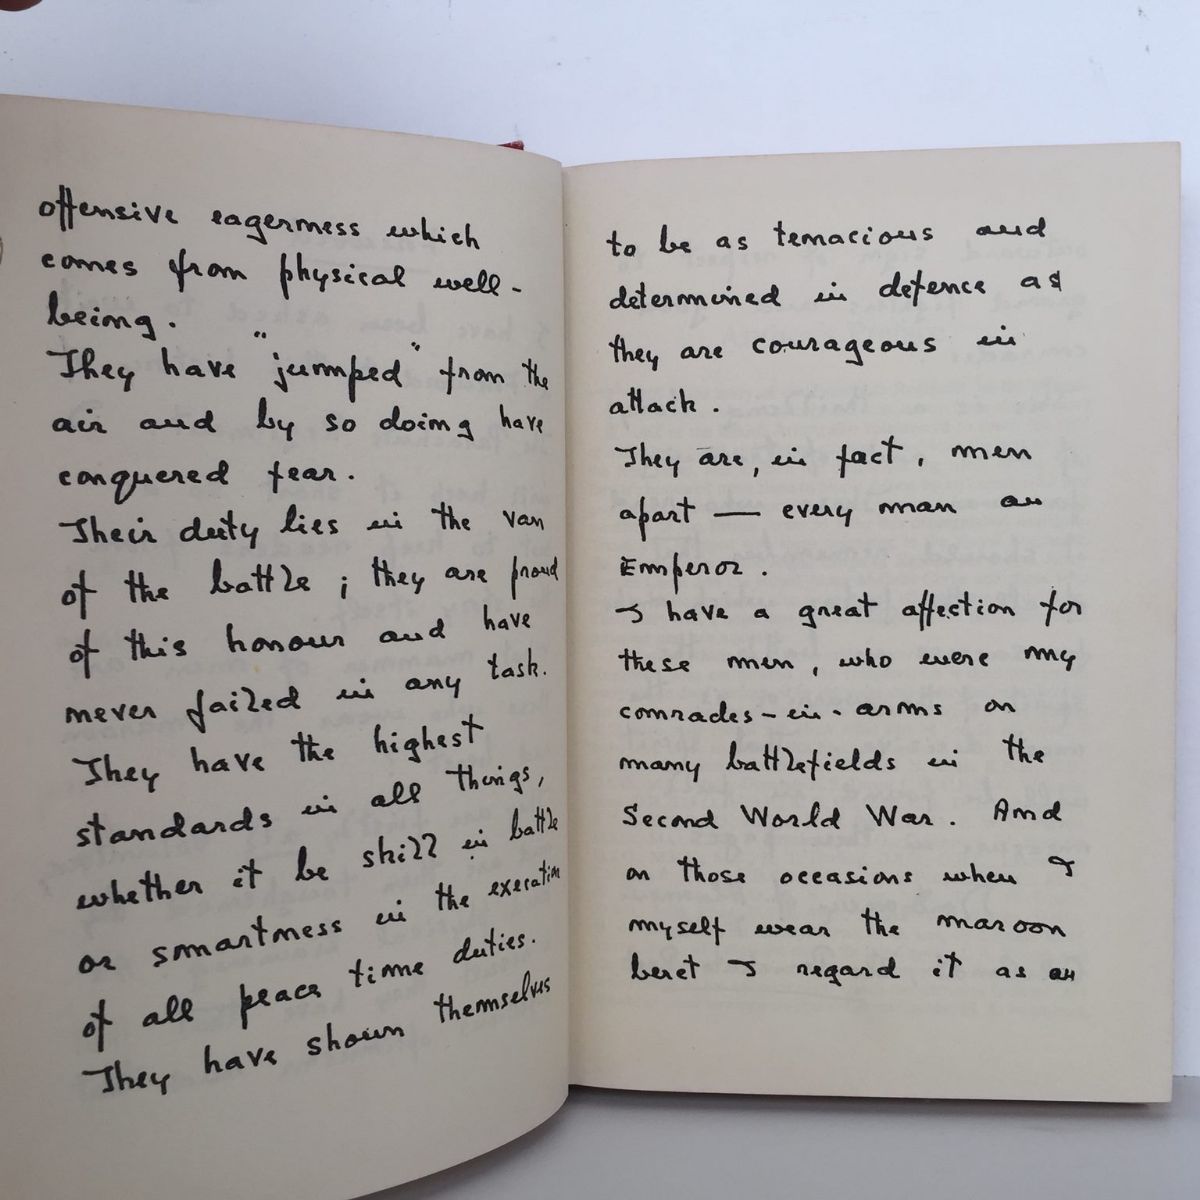 offensive eagerness which
comes from physical well-
being.
They have "jumped" from the
air and by so doing have
conquered fear.
Their duty lies in the van
of the battle; they are proud
of this honour and have
never failed in any task.
They have the highest
standards in all things,
whether it be skill in battle
or smartness in the execution
of all peace time duties.
They have shown themselves
to be as tenacious and
determined in defence as
they are courageous in
attack.
They are, in fact, men
apart — every man an
Emperor.
I have a great affection for
these men, who were my
comrades-in-arms on
many battlefields in the
Second World War. And
on those occasions when I
myself wear the maroon
beret I regard it as an